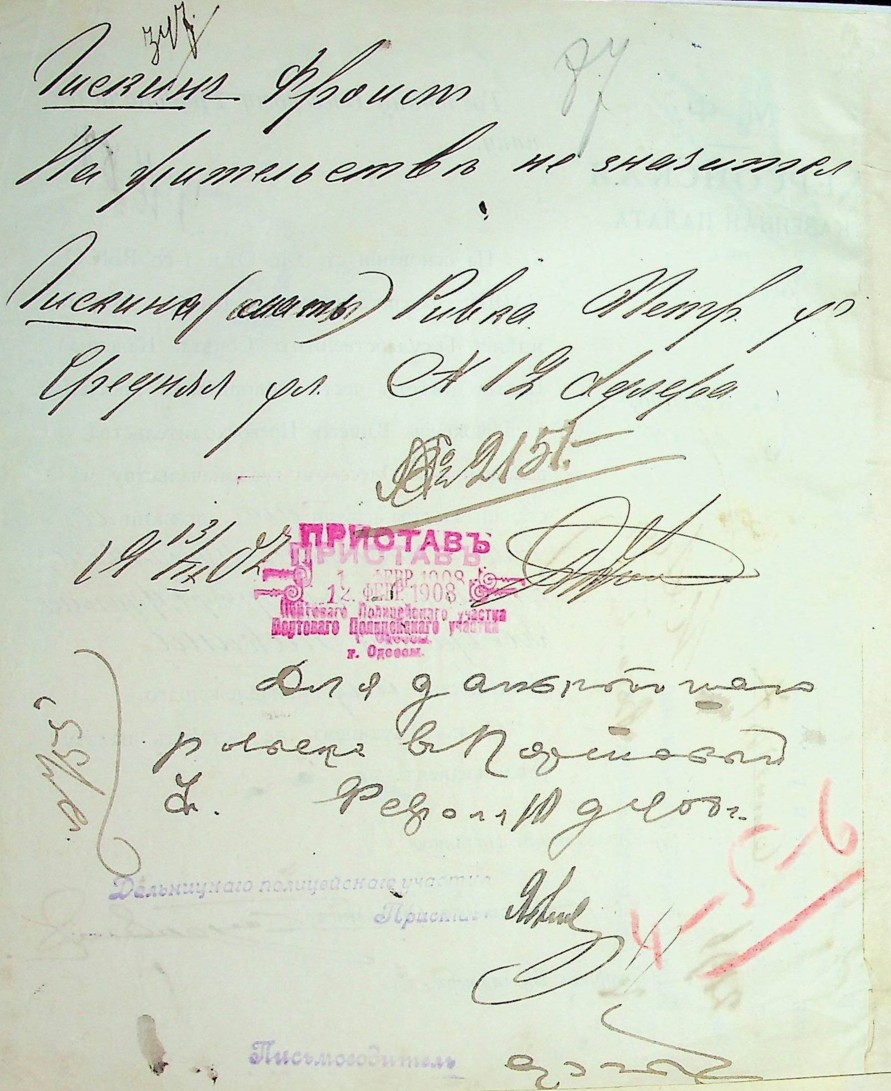 347
87
Пискинъ Фроимъ
На жительствѣ не значится
Пискина (мать) Ривка Петр. уч
Средняя ул. № 12 Адлера.
№ 2151
19 13/II 08
ПРИСТАВЪ
ПРИСТАВЪ
1 ФЕВР 1908
12 ФЕВР 1908
Портоваго Полицейскаго участка
Портоваго Полицейскаго участка
г. Одессы.
г. Одессы.
Для дальнѣйшаго
розыска въ Портовый
У. Февраля 10 д 1908 г.
4-5-6
Дальницкаго полицейскаго участка
Приставъ
Письмоводитель